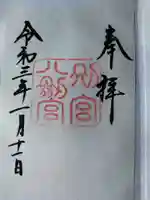 奉拝
別宮
八劔宮
令和三年一月十一日